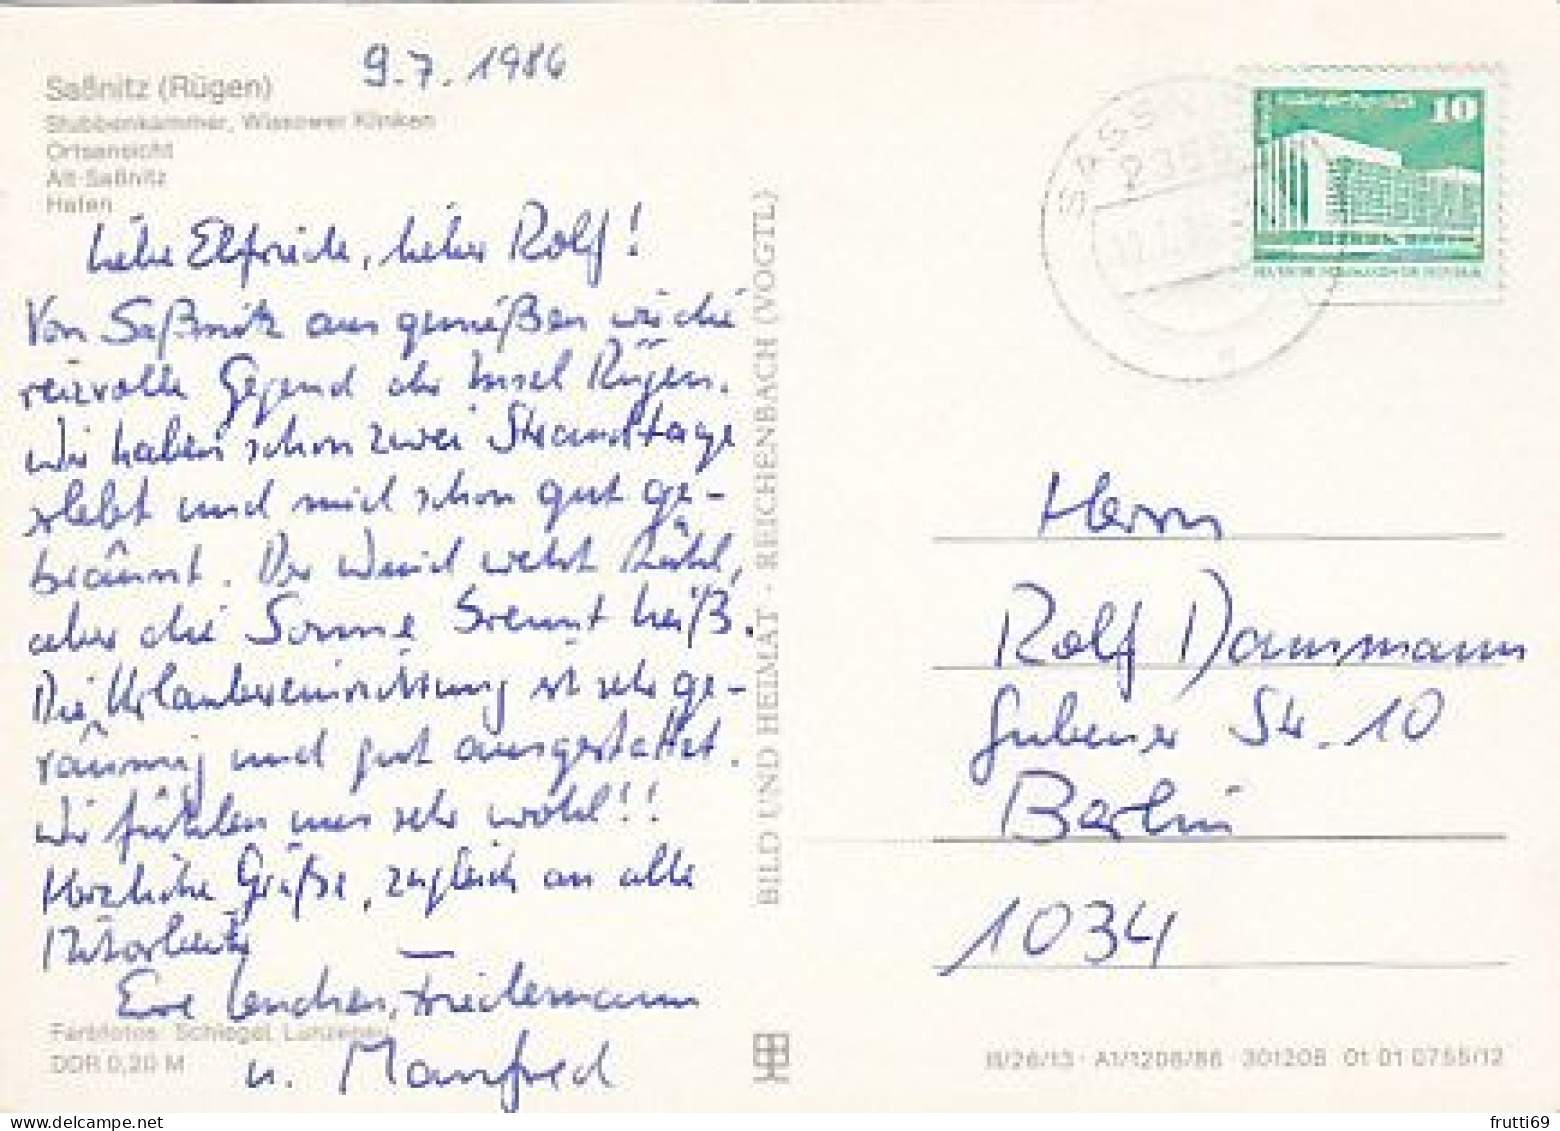 9.7.1986
Saßnitz (Rügen)
Stubbenkammer, Wissower Klinken
Ortsansicht
Alt-Saßnitz
Hafen
Liebe Elfriede, lieber Rolf!
Von Saßnitz aus genießen wir die
reizvolle Gegend der Insel Rügen.
Wir haben schon zwei Strandtage
erlebt und sind schon gut ge-
bräunt. Der Wind weht kühl,
aber die Sonne brennt heiß.
Die Urlaubereinrichtung ist sehr ge-
räumig und gut ausgestattet.
Wir fühlen uns sehr wohl!!
Herzliche Grüße, zugleich an alle
Mitarbeiter
Eve Lenchen, Friedemann
u. Manfred
Farbfotos: Schlegel, Lunzenau
DDR 0,20 M
BILD UND HEIMAT · REICHENBACH (VOGTL)
SASSNITZ
2355
10
DEUTSCHE DEMOKRATISCHE REPUBLIK
Herrn
Rolf Dammann
Gubener Str. 10
Berlin
1034
III/26/13 · A1/1208/86 · 301208 01 01 0755/12
frutti69